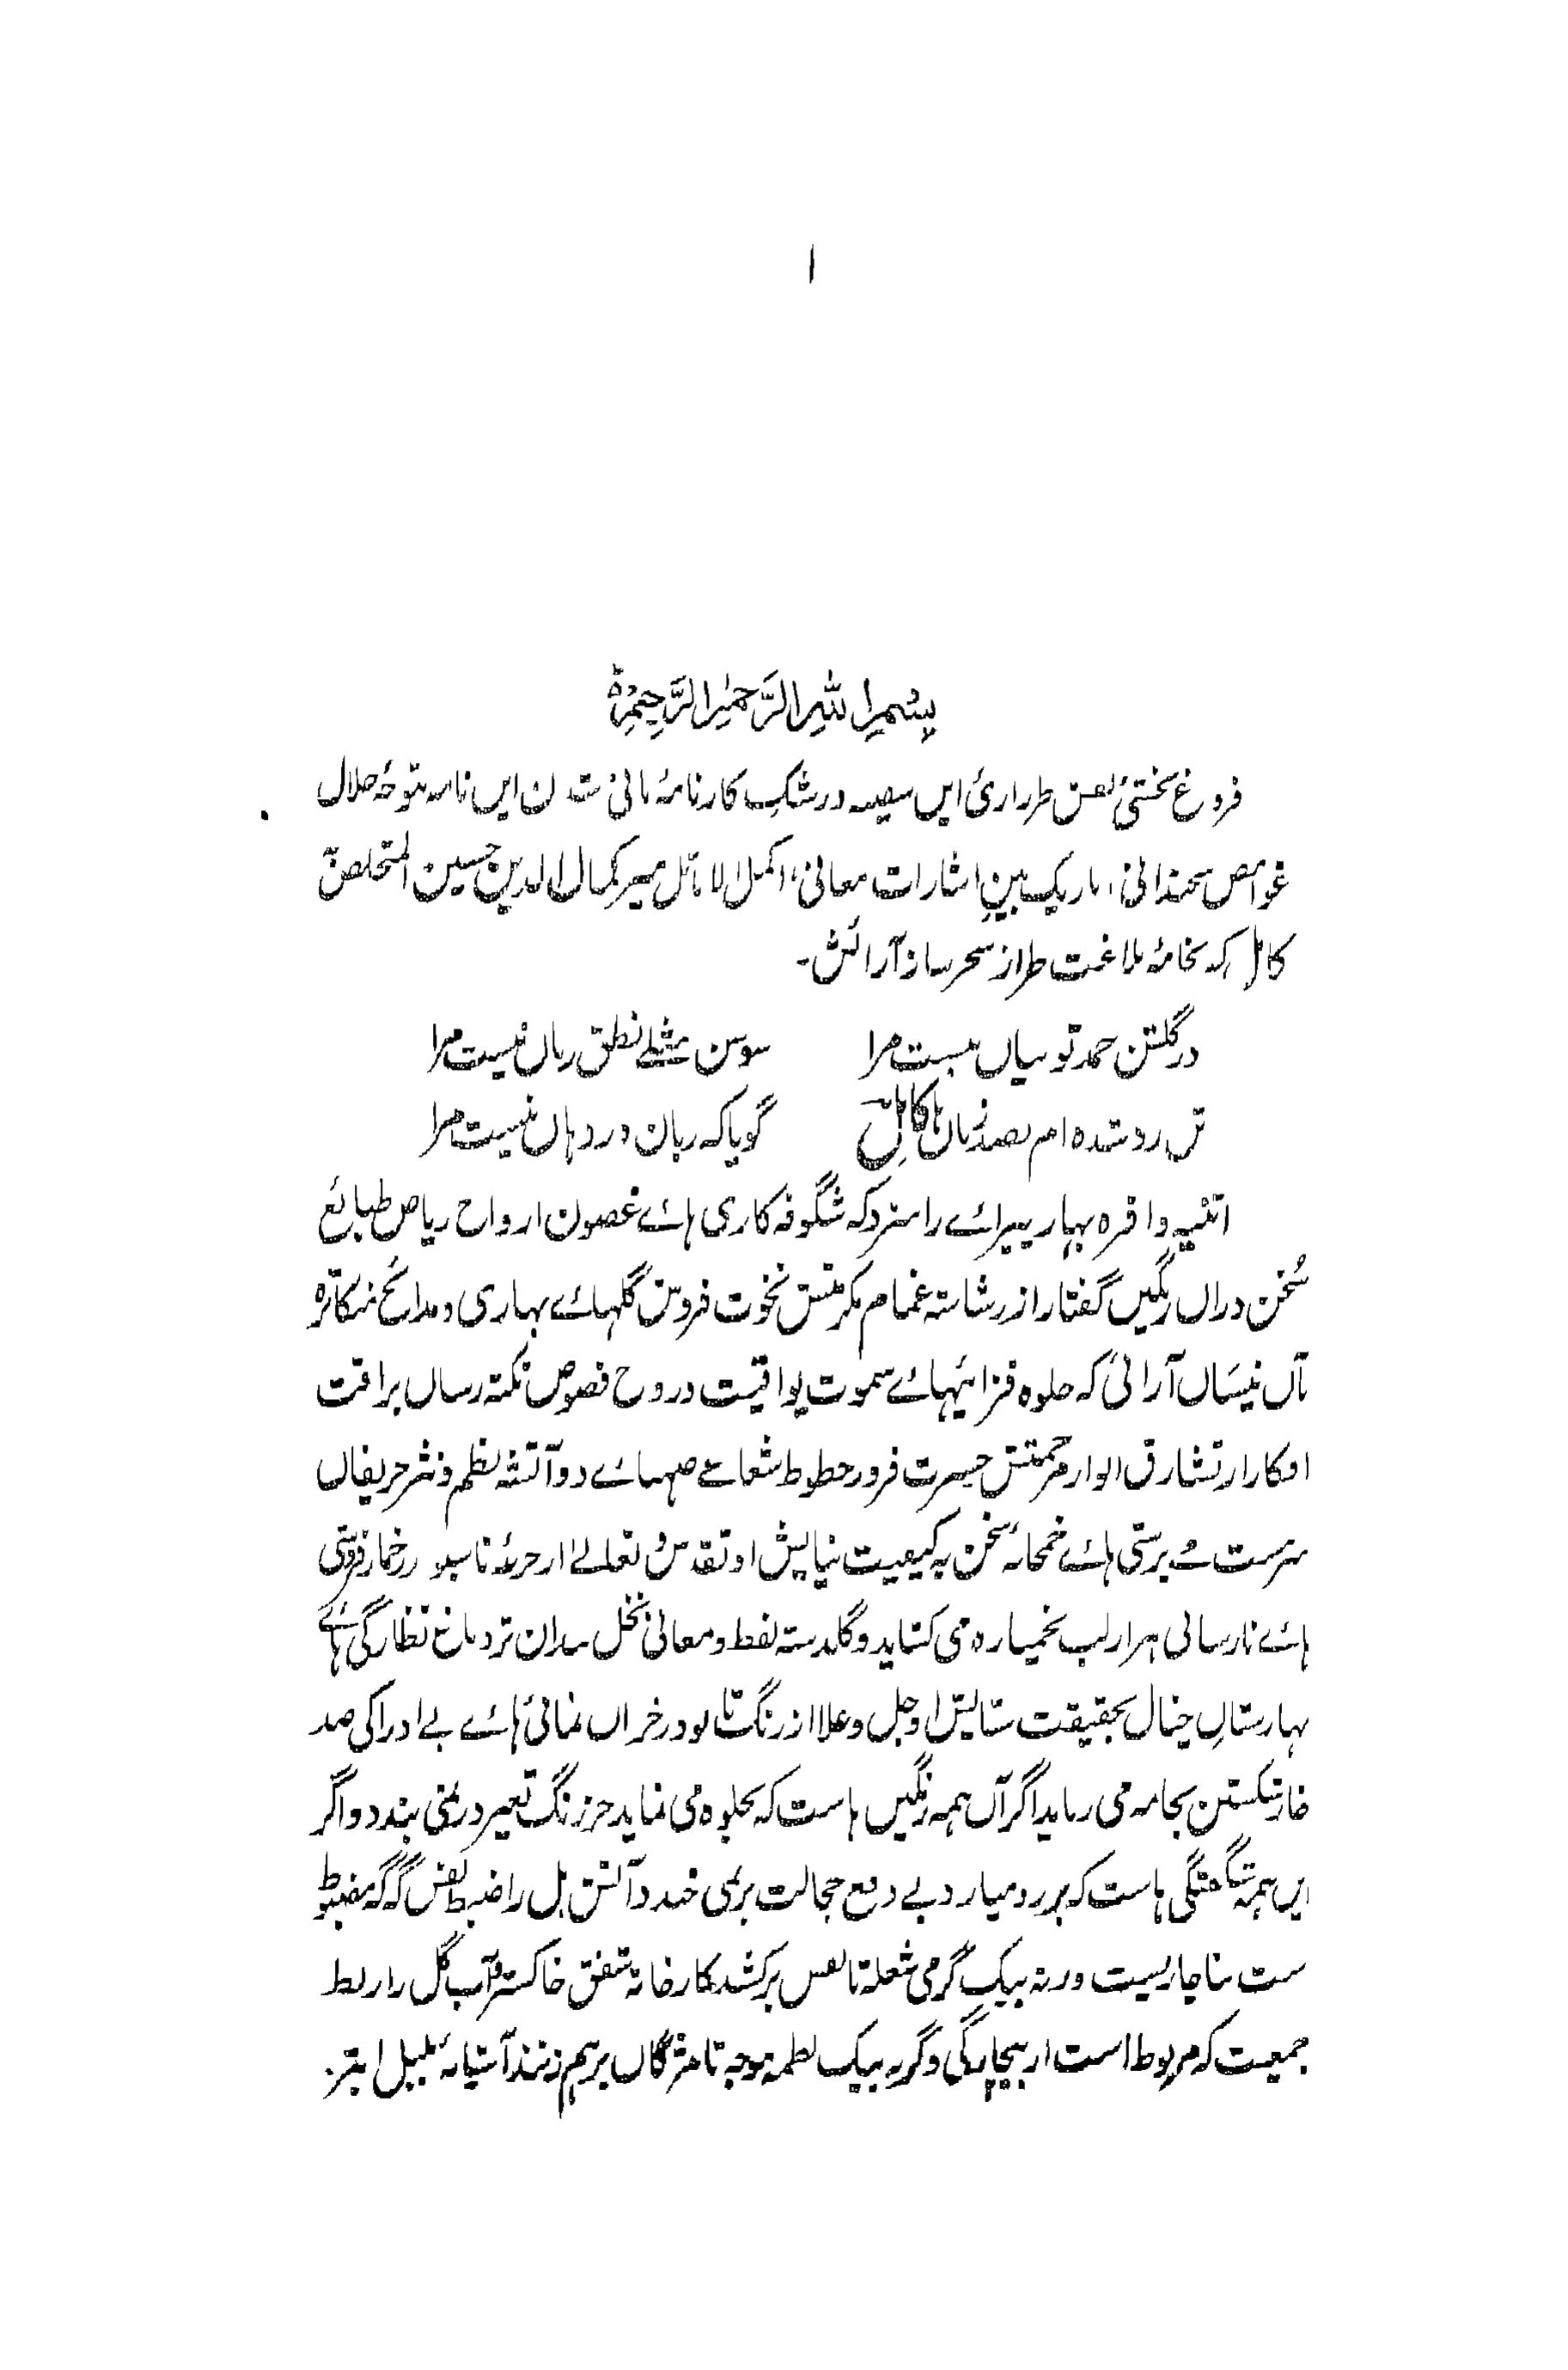 ا
بِسْمِ اللهِ الرَّحْمٰنِ الرَّحِيْمِ
فروغ بخشئ نقش طرازئ ایں سفینہ و رشکِ کارنامۂ مانی شدن ایں نامہ بتوجۂ حلال
غوامض سخندانی، باریک بینِ اشارات معانی، اکمل الاماثل میر کمال الدین حسین المتخلص بہ
کامل کہ بخامۂ بلاغت طراز سحر ساز آرائش۔
در گلشن حمد تو بیاں نیست مرا سوسن مثلے نطق زباں نیست مرا
تن رو شدہ ام بصد زباں کامل گویا کہ زبان در دہاں نیست مرا
اثنیہ وافرہ بہار پیرائے را سزد کہ شگوفہ کاری ہائے غصون ارواح ریاض طبائع
سُخن وراں رنگیں گفتار از رشاشۂ غمام مکرمتش نخوت فروش گلہائے بہاری و مدائح متکاثرہ
آں نیساں آرائی کہ جلوہ فزائیہائے سموت یواقیت در وح فصوص نکتہ رساں براقت
افکار از تشارق انوار مرحمتش حیرت فروز خطوط شعاعے صہبائے دو آتشہ نظم و نثر حریفاں
سرمست مے پرستی ہائے خمخانۂ سخن بہ کیفیت نیایش او تقدس و تعالےٰ از جرعۂ نا سبو در خمار فروشی
ہائے نارسائی ہزار لب بخمیازہ می کشاید و گلدستہ لفظ و معانی نخل بندان تر دماغ نظارگی ہائے
بہارستانِ خیال بحقیقت ستایش او جل و علا از رنگ تا بو در خزاں نمائی ہائے بے ادراکی صد
خار شکستن بجامہ می رباید اگر آں ہمہ رنگیں ہاست کہ بجلوہ می نماید جز رنگ تغییر در نمی بندد و اگر
ایں ہمہ شگفتگی ہاست کہ بر رو میارد بے دمع خجالت بر نمی خندد آتش بل را ضبط نفس گہ گہ مضبوط
ست بناچاریست ورنہ بیک گرمی شعلہ تا نفس برکشد کارخانۂ شفق خاکستر و آب گل را ربط
جمعیت کہ مربوط است از بیچارگی و گر بہ بیک لطمہ موجہ تا مژگاں برہم زند آشیانۂ بلبل ابتر۔